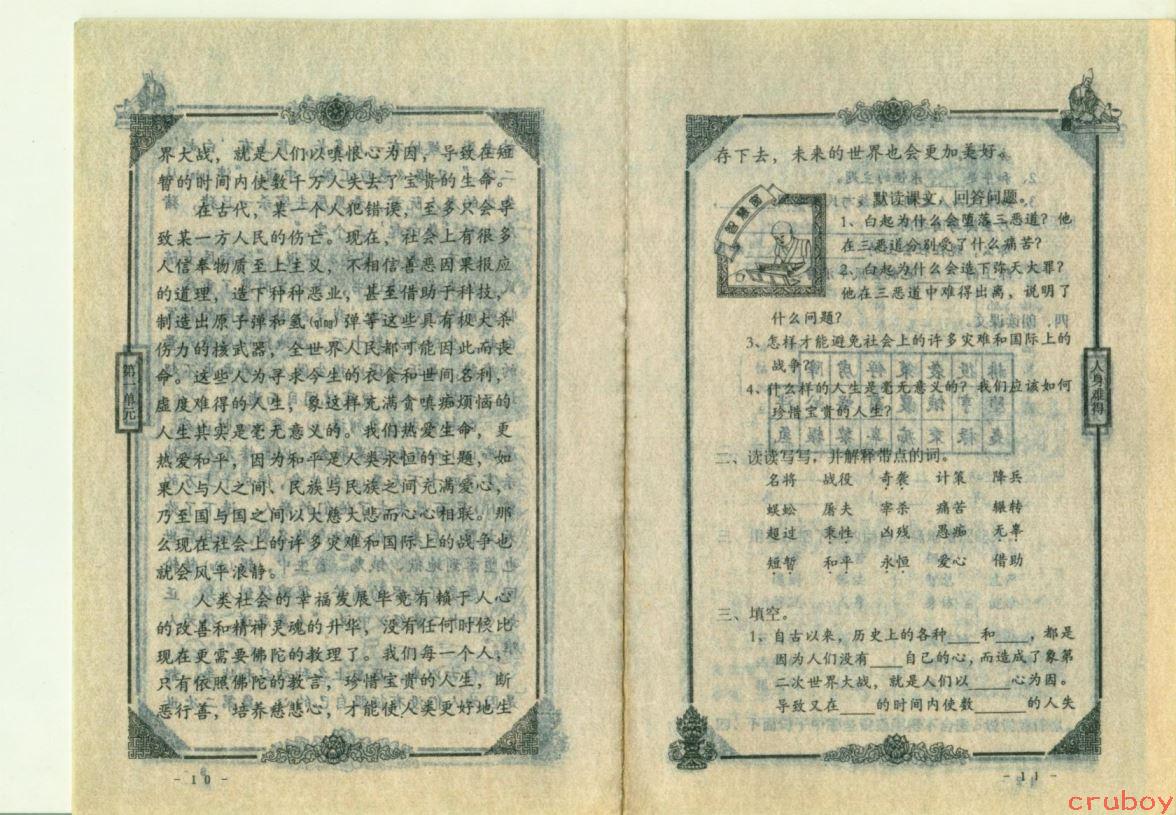 界大战，就是人们以嗔恨心为因，导致在短
暂的时间内使数千万人失去了宝贵的生命。
在古代，某一个人犯错误，至多只会导
致某一方人民的伤亡。现在，社会上有很多
人信奉物质至上主义，不相信善恶因果报应
的道理，造下种种恶业，甚至借助于科技，
制造出原子弹和氢(qīng)弹等这些具有极大杀
伤力的核武器，全世界人民都可能因此而丧
命。这些人为寻求今生的衣食和世间名利，
虚度难得的人生，象这样充满贪嗔痴烦恼的
人生其实是毫无意义的。我们热爱生命，更
热爱和平，因为和平是人类永恒的主题，如
果人与人之间、民族与民族之间充满爱心，
乃至国与国之间以大慈大悲而心心相联。那
么现在社会上的许多灾难和国际上的战争也
就会风平浪静。
人类社会的幸福发展毕竟有赖于人心
的改善和精神灵魂的升华，没有任何时候比
现在更需要佛陀的教理了。我们每一个人，
只有依照佛陀的教言，珍惜宝贵的人生，断
恶行善，培养慈悲心，才能使人类更好地生
第一单元
- 10 -
存下去，未来的世界也会更加美好。
智慧窗
默读课文，回答问题。
1、白起为什么会堕落三恶道？他
在三恶道分别受了什么痛苦？
2、白起为什么会造下弥天大罪？
他在三恶道中难得出离，说明了
什么问题？
3、怎样才能避免社会上的许多灾难和国际上的
战争？
4、什么样的人生是毫无意义的？我们应该如何
珍惜宝贵的人生？
二、读读写写，并解释带点的词。
名将 战役 奇袭 计策 降兵
蜈蚣 屠夫 宰杀 痛苦 辗转
超过 秉性 凶残 愚痴 无辜
短暂 和平 永恒 爱心 借助
三、填空。
1、自古以来，历史上的各种____和____，都是
因为人们没有____自己的心，而造成了象第
二次世界大战，就是人们以_____心为因。
导致又在____的时间内使数______的人失
人身难得
- 11 -
cruboy